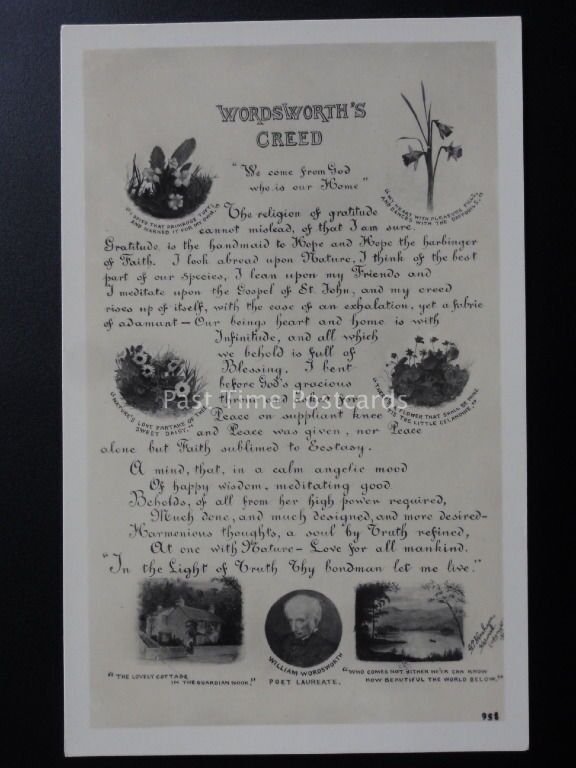 WORDSWORTH'S
CREED
"We come from God
who is our Home"
"I SPIED THAT PRIMROSE TUFT,
AND MARKED IT FOR MY OWN."
HEART WITH PLEASURE FILLS,
AND DANCES WITH THE DAFFODILS.
The religion of gratitude
cannot mislead, of that I am sure.
Gratitude is the handmaid to Hope and Hope the harbinger
of Faith. I look abroad upon Nature, I think of the best
part of our species, I lean upon my Friends and
I meditate upon the Gospel of St. John, and my creed
rises up of itself, with the ease of an exhalation, yet a fabric
of adamant - Our beings heart and home is with
Infinitude, and all which
we behold is full of
Blessing. I bent
before God's gracious
throne and asked for
Peace on suppliant knee
and Peace was given, nor Peace
alone but Faith sublimed to Ecstasy.
"NATURE'S LOVE PARTAKE OF THEE
SWEET DAISY."
FLOWER THAT SHALL BE MINE
'TIS THE LITTLE CELANDINE."
Past Time Postcards
A mind, that, in a calm angelic mood
Of happy wisdom, meditating good
Beholds, of all from her high power required,
Much done, and much designed, and more desired-
Harmonious thoughts, a soul by Truth refined,
At one with Nature- Love for all mankind.
"In the Light of Truth Thy bondman let me live."
"THE LOVELY COTTAGE
IN THE GUARDIAN NOOK."
WILLIAM WORDSWORTH
POET LAUREATE.
"WHO COMES NOT HITHER NE'ER CAN KNOW
HOW BEAUTIFUL THE WORLD BELOW."
958